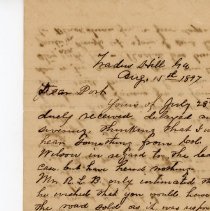 Traders Hill Ga.
Aug. 15th 1897
Dear Pork
Yours of July 28
duly received delayed
thinking that I
hear something from Col.
Wilson in regard to the
case but have heard nothing.
Mr. R. L. B. intimated
he wished that you would have
the road sold as it was